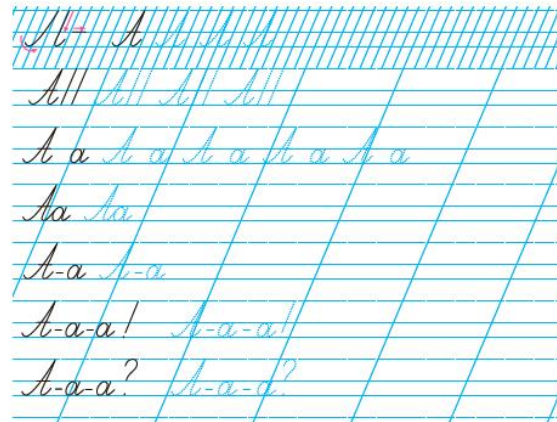 А А А А А
А// А// А// А//
А а А а А а А а А а
Аа Аа
А-а А-а
А-а-а! А-а-а!
А-а-а? А-а-а?